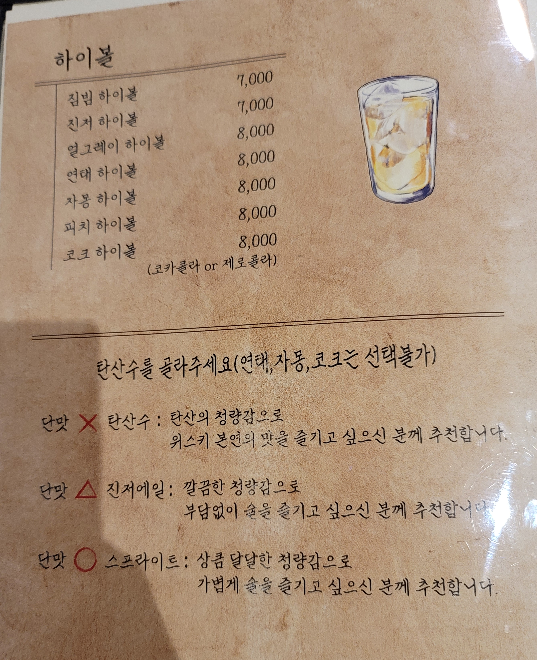 하이볼
짐빔 하이볼 7,000
진저 하이볼 7,000
얼그레이 하이볼 8,000
연태 하이볼 8,000
자몽 하이볼 8,000
피치 하이볼 8,000
코크 하이볼 8,000
(코카콜라 or 제로콜라)
탄산수를 골라주세요(연태,자몽,코크는 선택불가)
단맛 X 탄산수 : 탄산의 청량감으로
위스키 본연의 맛을 즐기고 싶으신 분께 추천합니다.
단맛 △ 진저에일 : 깔끔한 청량감으로
부담없이 술을 즐기고 싶으신 분께 추천합니다.
단맛 ○ 스프라이트 : 상큼 달달한 청량감으로
가볍게 술을 즐기고 싶으신 분께 추천합니다.